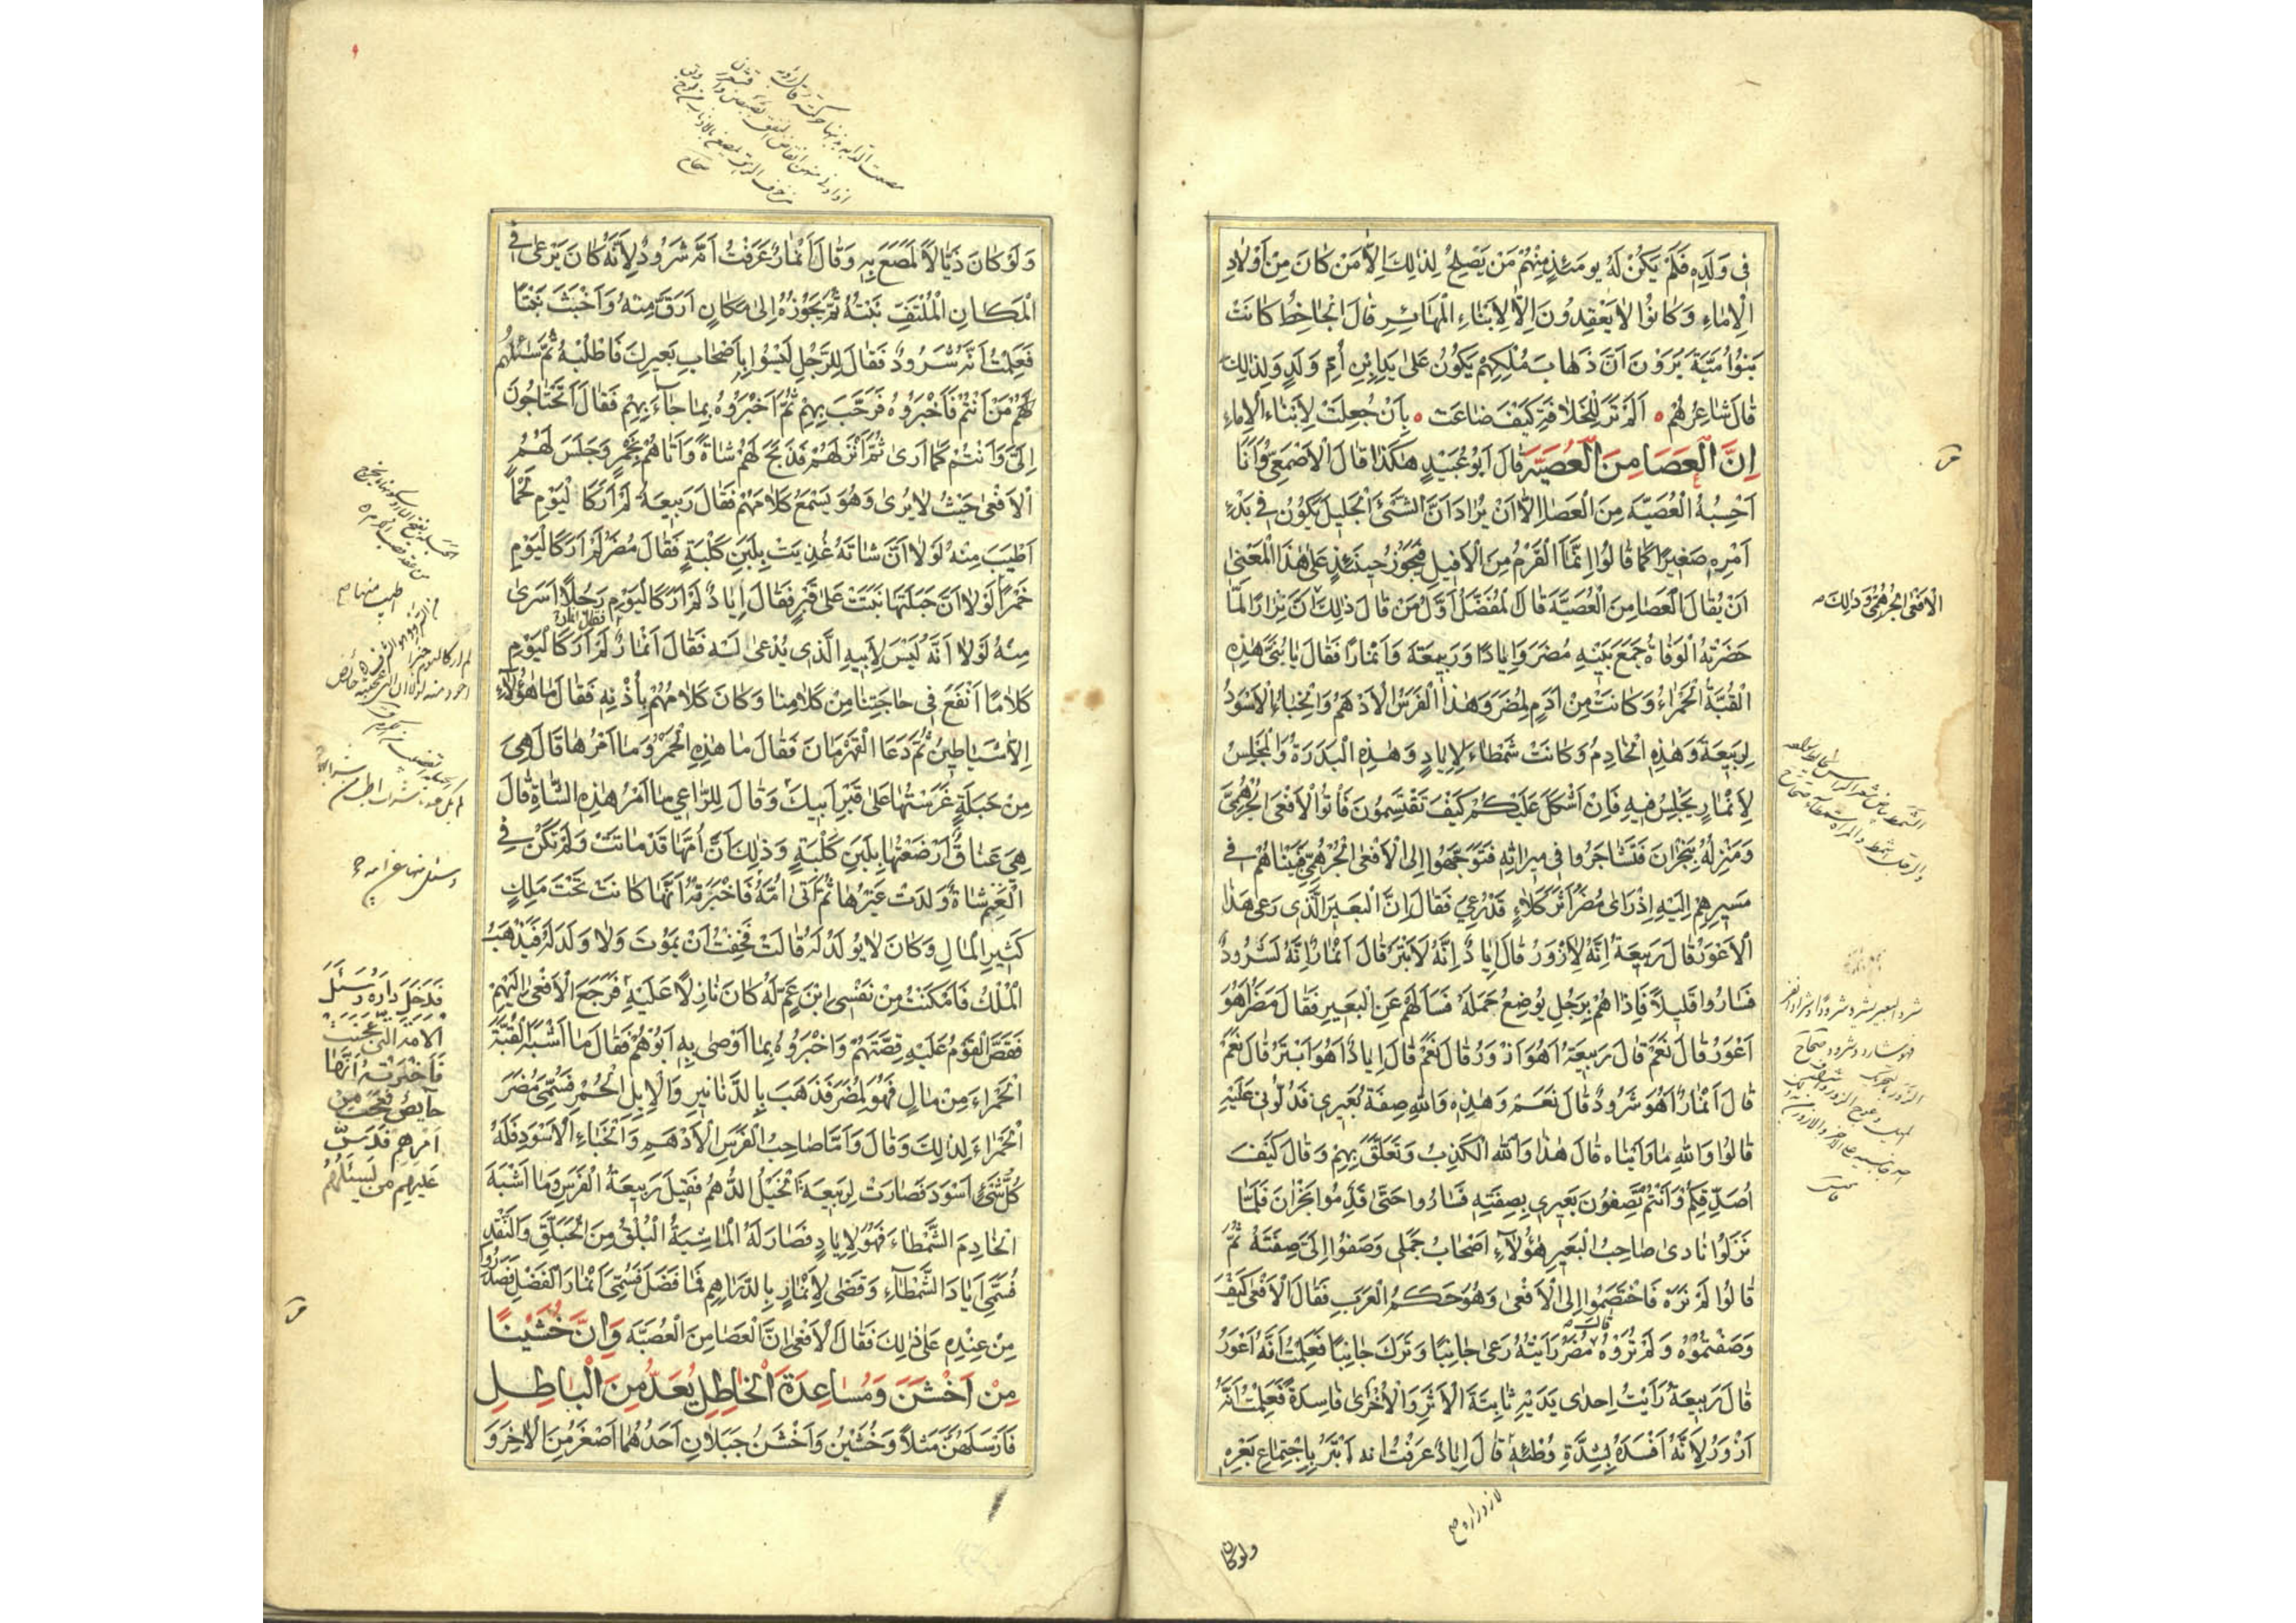 في ولده فلم يكن له يومئذ منهم من يصلح لذلك الا من كان من اولاد
الاماء وكانوا لا يعقدون الا لابناء المهائر قال الجاحظ كانت
بنوا مية يرون ان ذهاب ملكهم يكون على يد ابن ام ولد ولذلك
قال شاعرهم الم تر للخلافة كيف ضاعت بان جعلت لابناء الاماء
ان العصا من العصية قال ابو عبيد هكذا قال الاصمعي وانا
احسبه العصية من العصا الا ان يراد ان الشئ الجليل يكون في بدء
امره صغيرا كما قالوا انما القرم من الافيل فيجوز حينئذ على هذا المعنى
ان يقال العصا من العصية قال المفضل اول من قال ذلك ان نزارا لما
حضرته الوفاة جمع بنيه مضر وايادا وربيعة وانمارا فقال يا بني هذه
القبة الحمراء وكانت من ادم لمضر وهذا الفرس الادهم والخباء الاسود
لربيعة وهذه الخادم وكانت شمطاء لاياد وهذه البدرة والمجلس
لانمار يجلس فيه فان اشكل عليكم كيف تقتسمون فأتوا الافعى الجرهمي
ومنزله بنجران فتشاجروا في ميراثه فتوجهوا الى الافعى الجرهمي فبيناهم في
مسيرهم اليه اذ راى مضر اثر كلاء قد رعي فقال ان البعير الذي رعى هذا
الاعور قال ربيعة انه لازور قال اياد انه لابتر قال انمار انه لشرود
فساروا قليلا فاذا هم برجل يوضع جمله فسألهم عن البعير فقال مضر اهو
اعور قال نعم قال ربيعة اهو ازور قال نعم قال اياد اهو ابتر قال نعم
قال انمار اهو شرود قال نعم وهذه والله صفة بعيري فدلوني عليه
قالوا والله ما رأيناه قال هذا والله الكذب وتعلق بهم وقال كيف
اصدقكم وانتم تصفون بعيري بصفته فساروا حتى قدموا نجران فلما
نزلوا نادى صاحب البعير هؤلاء اصحاب جملي وصفوا الي صفته ثم
قالوا لم نره فاختصموا الى الافعى وهو حكم العرب فقال الافعى كيف
وصفتموه ولم تروه قال مضر رايته رعى جانبا وترك جانبا فعلمت انه اعور
قال ربيعة رايت احدى يديه ثابتة الاثر والاخرى فاسدة فعلمت انه
ازور لانه افسده بشدة وطئه قال اياد عرفت انه ابتر باجتماع بعره
ولوكان
الافعى الجرهمي وذلك
ولو كان ذيالا لمصع به وقال انمار عرفت انه شرود لانه كان يرعى في
المكان الملتف نبته ثم يجوزه الى مكان ارق منه واخبث نبتا
فعلمت انه شرود فقال للرجل ليسوا باصحاب بعيرك فاطلبه ثم سألهم
لهم من انتم فاخبروه فرحب بهم ثم اخبروه بما جاء بهم فقال اتحتاجون
الي وانتم كما ارى ثم انزلهم فذبح لهم شاة واتاهم بخمر وجلس لهم
الافعى حيث لا يرى وهو يسمع كلامهم فقال ربيعة لم ار كاليوم لحما
اطيب منه لولا ان شاته غذيت بلبن كلبة فقال مضر لم ار كاليوم
خمرا لولا ان حبلتها نبتت على قبر فقال اياد لم ار كاليوم رجلا اسرى
منه لولا انه ليس لابيه الذي يدعى له فقال انمار لم ار كاليوم
كلاما انفع في حاجتنا من كلامنا وكان كلامهم باذنه فقال ما هؤلاء
الا شياطين ثم دعا القهرمان فقال ما هذه الخمر وما امرها قال هي
من حبلة غرستها على قبر ابيك وقال للراعي ما امر هذه الشاة قال
هي عناق ارضعتها بلبن كلبة وذلك ان امها قد ماتت ولم تكن في
الغنم شاة ولدت غيرها ثم اتى امه فاخبرته انها كانت تحت ملك
كثير المال وكان لا يولد له قالت فخفت ان يموت ولا ولد له فيذهب
الملك فامكنت من نفسي ابن عم له كان نازلا عليه فرجع الافعى اليهم
فقص القوم عليه قصتهم واخبروه بما اوصى به ابوهم فقال ما اشبه القبة
الحمراء من مال فهو لمضر فذهب بالدنانير والابل الحمر فسمي مضر
الحمراء لذلك وقال واما صاحب الفرس الادهم والخباء الاسود فله
كل شئ اسود فصارت لربيعة الخيل الدهم فقيل ربيعة الفرس وما اشبه
الخادم الشمطاء فهو لاياد فصار له الماشية البلق من الحبلق والنقد
فسمي اياد الشمطاء وقضى لانمار بالدراهم فما فضل فسمي انمار الفضل فصدروا
من عنده على ذلك فقال الافعى ان العصا من العصية وان خشينا
من اخشن ومساعدة الخاطل يعد من الباطل
فارسلهن مثلا وخشين واخشن جبلان احدهما اصغر من الاخر و
فدخل داره وسئل
الامة التي عجنت
فاخبرته انها
حائض فعجب من
امرهم فدس
عليهم من يسئلهم